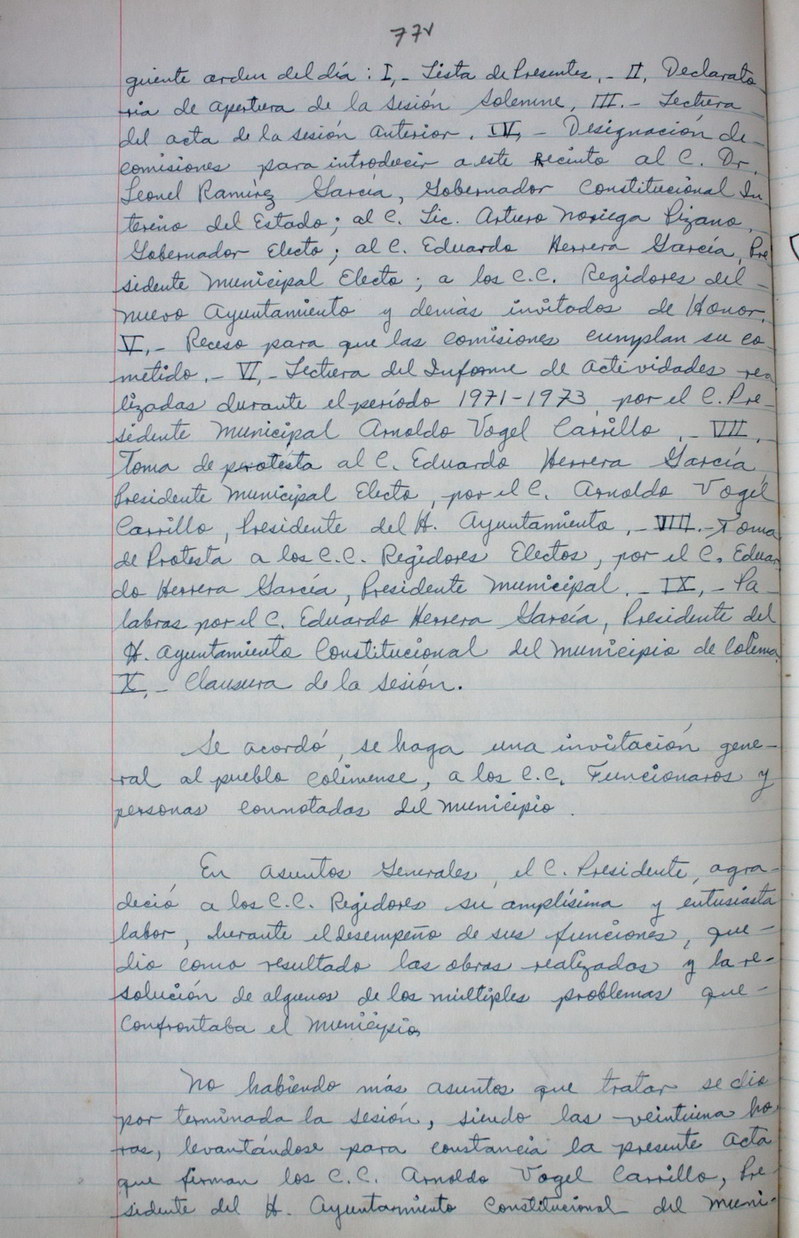 77v
guiente orden del día: I.- Lista de Presentes.- II, Declarato
ria de apertura de la sesión Solemne, III.- Lectura
del acta de la sesión anterior. IV.- Designación de-
comisiones para introducir a este Recinto al C. Dr.
Leonel Ramírez García, Gobernador Constitucional In
terino del Estado; al C. Lic. Arturo Noriega Pizano,
Gobernador Electo; al C. Eduardo Herrera García, Pre
sidente Municipal Electo; a los C.C. Regidores del-
nuevo Ayuntamiento y demás invitados de Honor.
V.- Receso para que las comisiones cumplan su co
metido.- VI.- Lectura del Informe de actividades rea
lizadas durante el período 1971-1973, por el C. Pre-
sidente Municipal Arnoldo Vogel Carrillo.- VII.
Toma de protesta al C. Eduardo Herrera García,
Presidente Municipal Electo, por el C. Arnoldo Vogel
Carrillo, Presidente del H. Ayuntamiento.- VIII.- Toma
de Protesta a los C.C. Regidores Electos, por el C. Eduar
do Herrera García, Presidente Municipal.- IX.- Pa
labras por el C. Eduardo Herrera García, Presidente del
H. Ayuntamiento Constitucional del Municipio de Colima
X.- Clausura de la sesión.
Se acordó, se haga una invitación gene-
ral al pueblo colimense, a los C.C. Funcionaros y
personas connotadas del Municipio.
En asuntos Generales, el C. Presidente, agra-
deció a los C.C. Regidores su amplísima y entusiasta
labor, durante el desempeño de sus funciones, que-
dio como resultado las obras realizadas y la re-
solución de algunos de los múltiples problemas que-
confrontaba el Municipio,
No habiendo más asuntos que tratar se dio
por terminada la sesión, siendo las veintiuna ho
ras, levantándose para constancia la presente Acta
que firman los C.C. Arnoldo Vogel Carrillo, Pre
sidente del H. Ayuntamiento Constitucional del Muni-